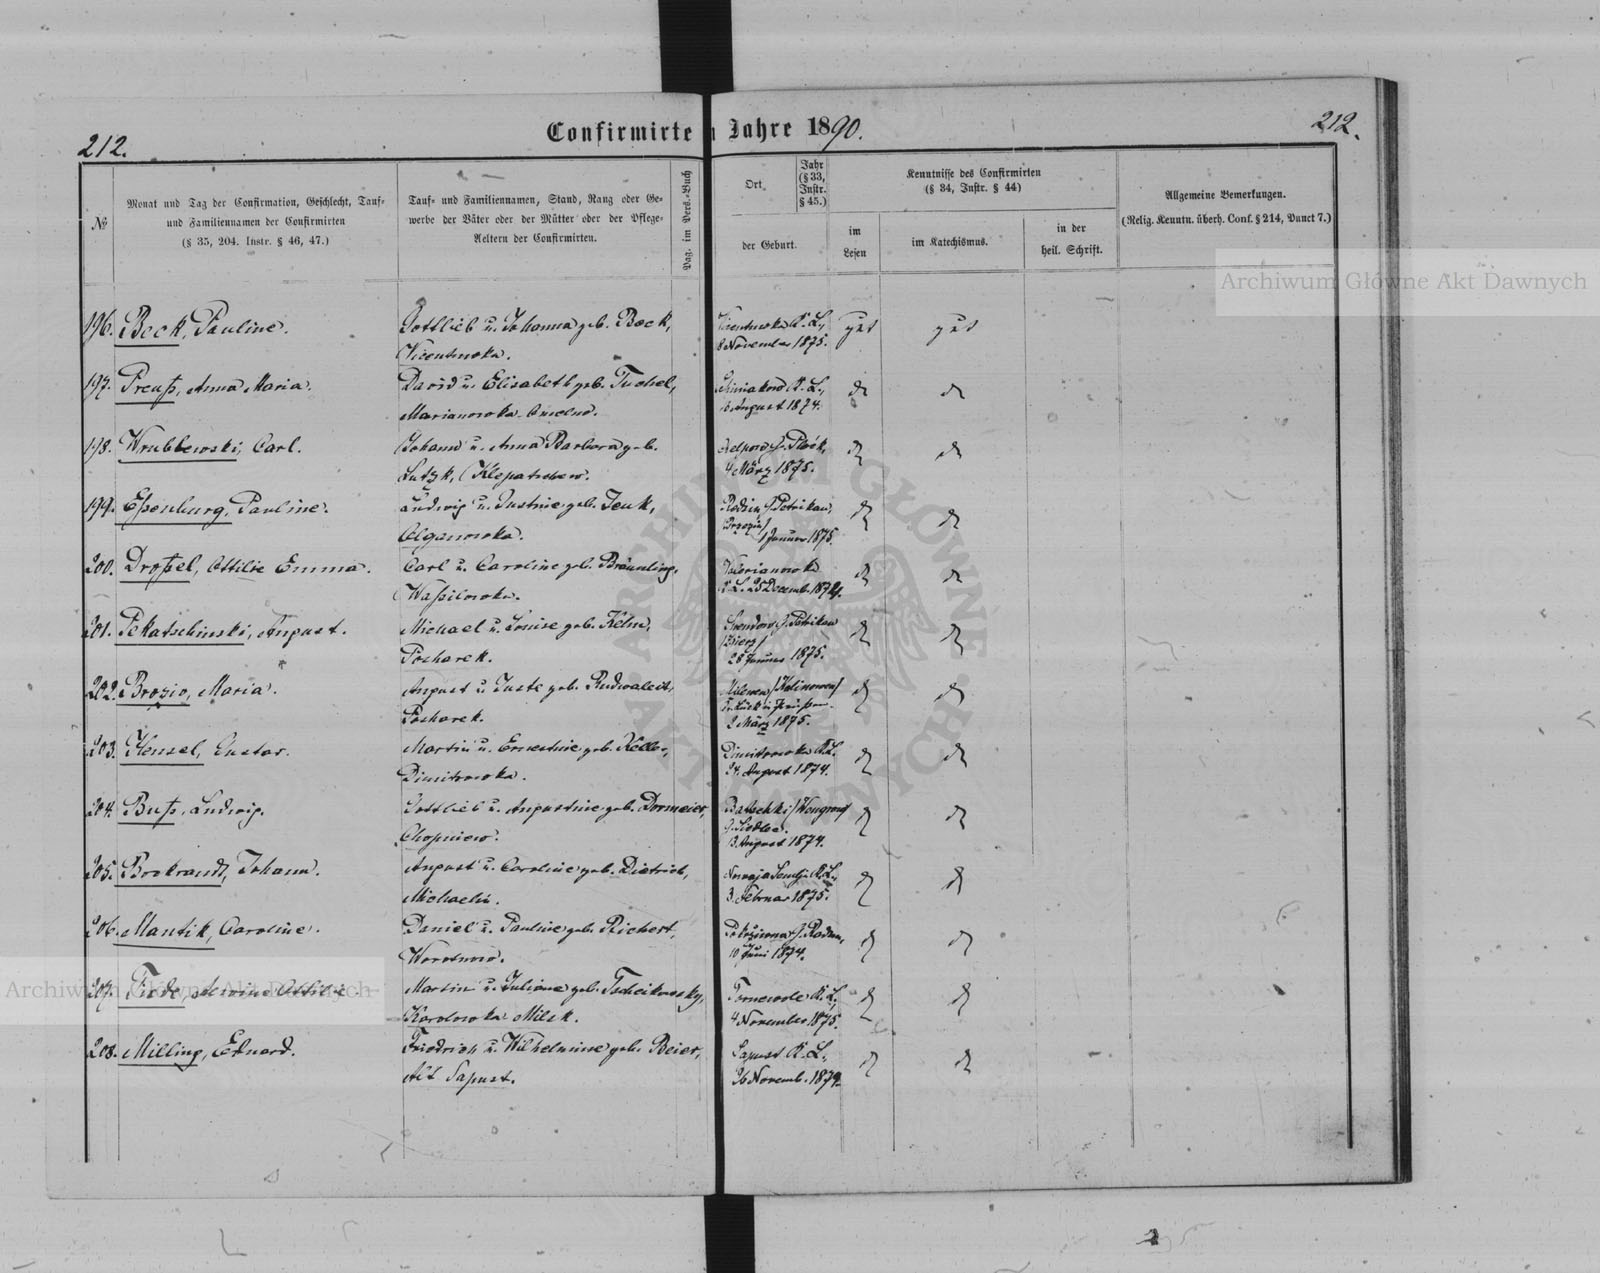 212.
Confirmirte
Jahre 1890.
212.
№
Monat und Tag der Confirmation, Geschlecht, Tauf-
und Familiennamen der Confirmirten
(§ 35, 204. Instr. § 46, 47.)
Tauf- und Familiennamen, Stand, Rang oder Ge-
werbe der Väter oder der Mütter oder der Pflege-
Aeltern der Confirmirten.
Pag. im Pers.-Buch
Ort
Jahr
(§ 33,
Instr.
§ 45.)
der Geburt.
Kenntnisse des Confirmirten
(§ 34, Instr. § 44)
im
Lesen
im Katechismus.
in der
heil. Schrift.
Allgemeine Bemerkungen.
(Relig. Kenntn. überh. Conf. § 214, Punct 7.)
Archiwum Główne Akt Dawnych
196. Beck, Pauline.
Gottlieb u. Johanna geb. Beck,
8 November 1875.
gut
gut
197. Preuß, Anna Maria.
David u. Elisabeth geb. Tuchel,
August 1874.
198. Wrubbewski, Carl.
Johann u. Anna Barbara geb.
Lutzk,
Plock,
4 März 1875.
199. Eßenburg, Pauline.
Ludwig u. Justine geb. Jeuk,
Olganowka.
Petrikau,
1 Januar 1875.
200. Droßel, Ottilie Emma.
Carl u. Caroline geb. Bräunling,
Waßilowka.
Valerianowka
K. L. 25 Decemb. 1874.
201. Pekatschinski, August.
Michael u. Louise geb. Kelm,
Poscharek.
Petrikau
28 Januar 1875.
202. Brozio, Maria.
August u. Juste geb. Rudwaleit,
Poscharek.
Milewen /Kalinowen/
2 März 1875.
203. Hensel, Gustav.
Martin u. Ernestine geb. Keller,
Dimitrowka.
Dimitrowka K. L.
24. August 1874.
204. Buß, Ludwig.
Gottlieb u. Augustine geb. Dormeier,
Chopniew.
G. Siedlce.
13. August 1874.
205. Brokrandt, Johann.
August u. Caroline geb. Dietrich,
Michaelin.
K. L.,
3. Februar 1875.
206. Mantik, Caroline.
Daniel u. Pauline geb. Richert,
Worotnow.
G. Radom,
10 Juni 1874.
207. Fiede, Alwine Ottilie
Martin u. Juliane geb. Tscheikowsky,
Karolowka Milsk.
K. L.,
4 November 1875.
208. Milling, Eduard.
Friedrich u. Wilhelmine geb. Beier,
Alt Sapust.
Sapust K. L.,
26 Novemb. 1874.
Archiwum Główne Akt Dawnych
ARCHIWUM GŁÓWNE AKT DAWNYCH